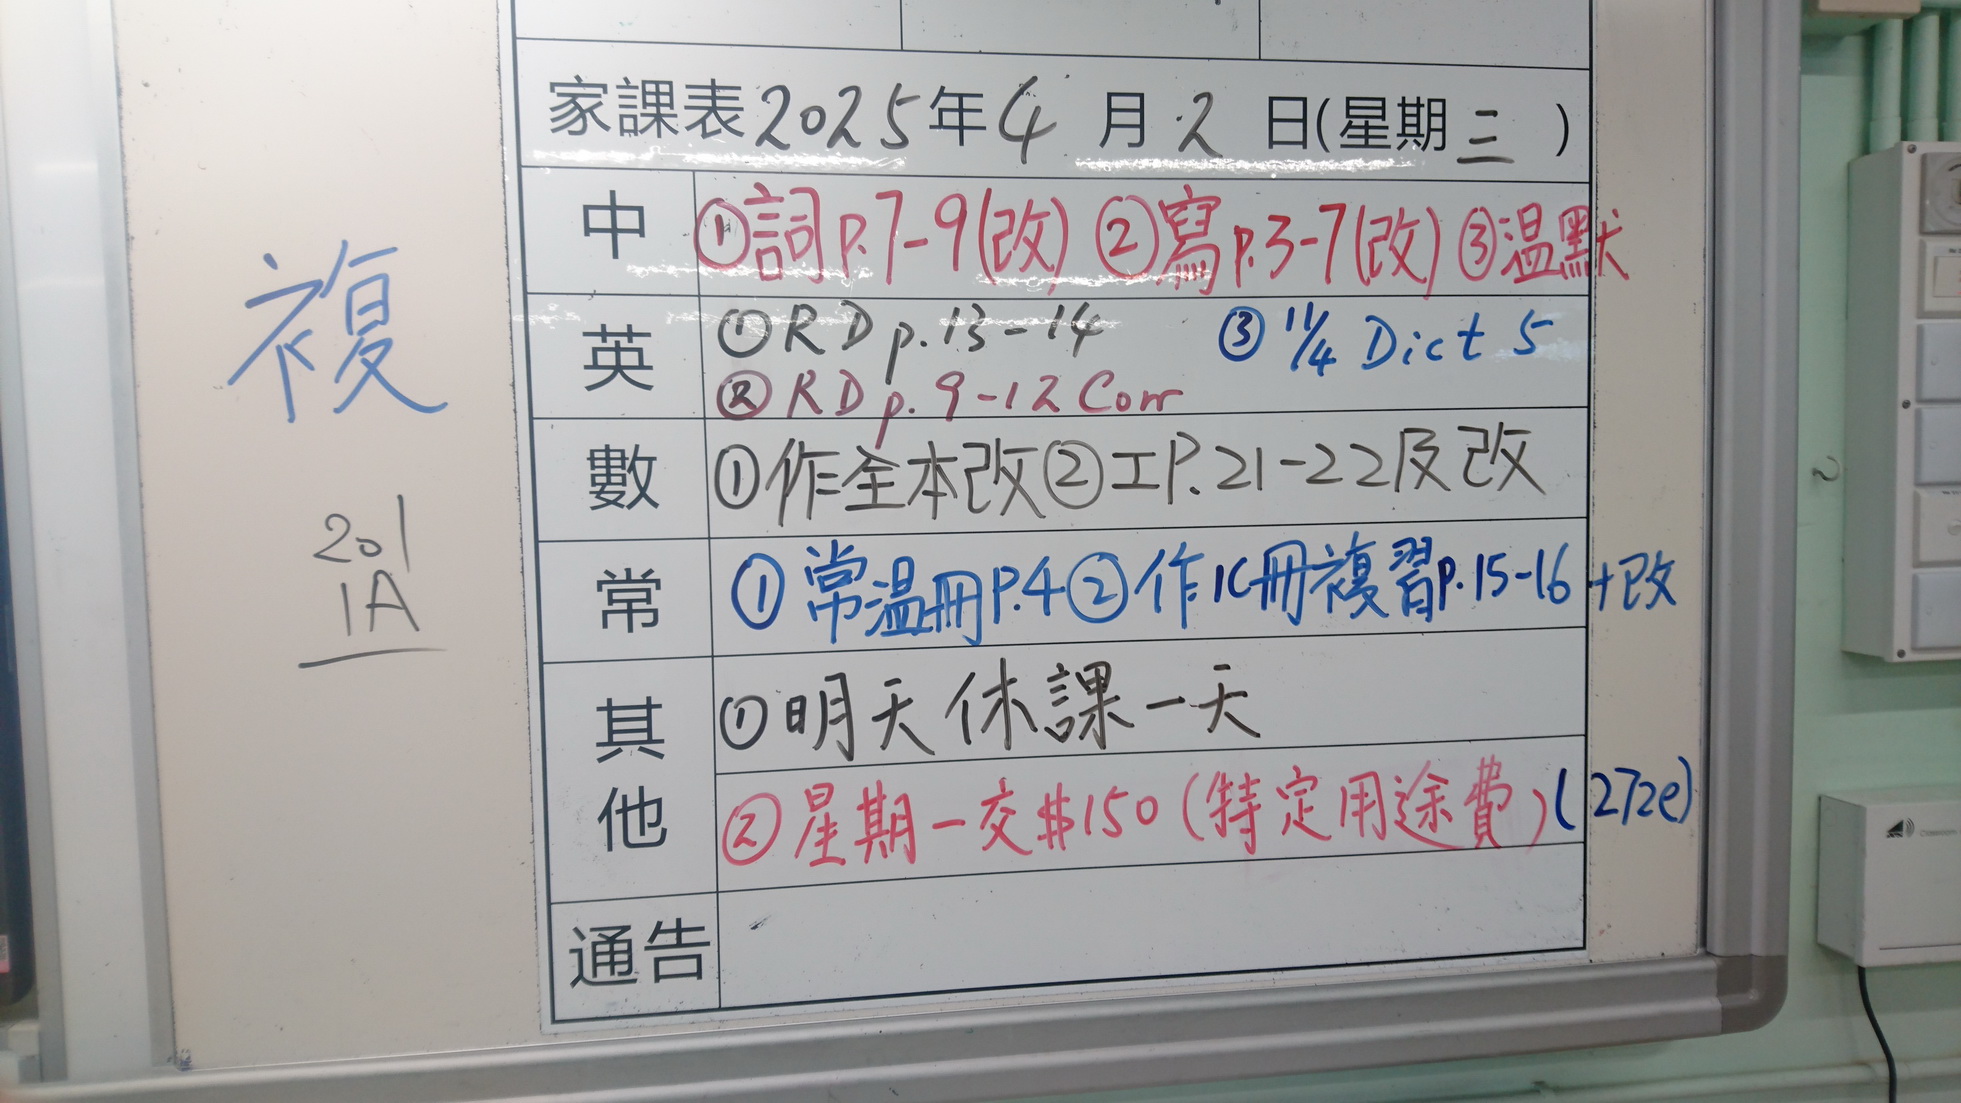 家課表2025年4月2日(星期三)
中 ①詞p.7-9(改) ②寫p.3-7(改) ③温默
英 ①RD p.13-14 ③11/4 Dict 5
②RD p.9-12 Corr
數 ①作全本改②工P.21-22及改
常 ①常温冊P.4②作1C冊複習p.15-16+改
其他 ①明天休課一天
②星期一交$150(特定用途費)(272e)
通告
複
201
1A